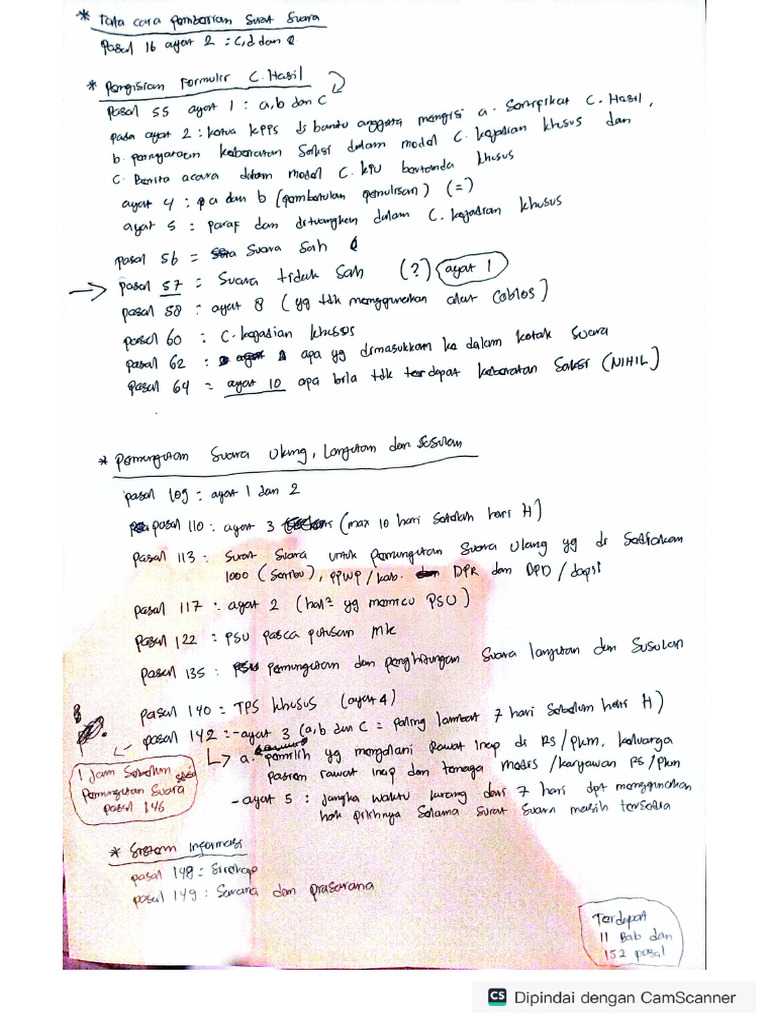 * Tata cara pemberian Surat Suara
Pasal 16 ayat 2 : c, d dan e
* Pengisian Formulir C. Hasil
Pasal 55 ayat 1 : a, b dan c
pada ayat 2 : ketua KPPS di bantu anggota mengisi a. Sertifikat C. Hasil,
b. pernyataan keberatan Saksi dalam model C. kejadian khusus dan
C. Berita acara dalam model C. KPU bertanda khusus
ayat 4 : a dan b (pembetulan penulisan) (=)
ayat 5 : paraf dan dituangkan dalam C. kejadian khusus
pasal 56 = Suara Sah
→ pasal 57 = Suara tidak Sah (?) ayat 1
pasal 58 : ayat 8 (yg tdk menggunakan alat Coblos)
pasal 60 : C. kejadian khusus
pasal 62 : apa yg dimasukkan ke dalam kotak Suara
pasal 64 = ayat 10 apa bila tdk terdapat keberatan Saksi (NIHIL)
* Pemungutan Suara Ulang, Lanjutan dan Susulan
pasal 109 : ayat 1 dan 2
pasal 110 : ayat 3 (max 10 hari Setelah hari H)
pasal 113 : Surat Suara untuk pemungutan Suara Ulang yg di Sediakan
1000 (Seribu), PPWP / kab. DPR dan DPD / dapil
pasal 117 : ayat 2 (hal² yg memicu PSU)
pasal 122 : PSU pasca putusan MK
pasal 135 : pemungutan dan penghitungan Suara lanjutan dan Susulan
pasal 140 = TPS khusus (ayat 4)
pasal 142 = - ayat 3 (a, b dan c = paling lambat 7 hari Sebelum hari H)
↳ a. pemilih yg mengalani Rawat inap di RS/pkm, keluarga
pasien rawat inap dan tenaga medis / karyawan RS/pkm
- ayat 5 : jangka waktu kurang dari 7 hari dpt menggunakan
hak pilihnya Selama Surat Suara masih tersedia
1 Jam Sebelum
Pemungutan Suara
pasal 146
* Sistem Informasi
pasal 148 = Sirekap
pasal 149 : Sarana dan prasarana
Terdapat
11 Bab dan
152 pasal
CS Dipindai dengan CamScanner